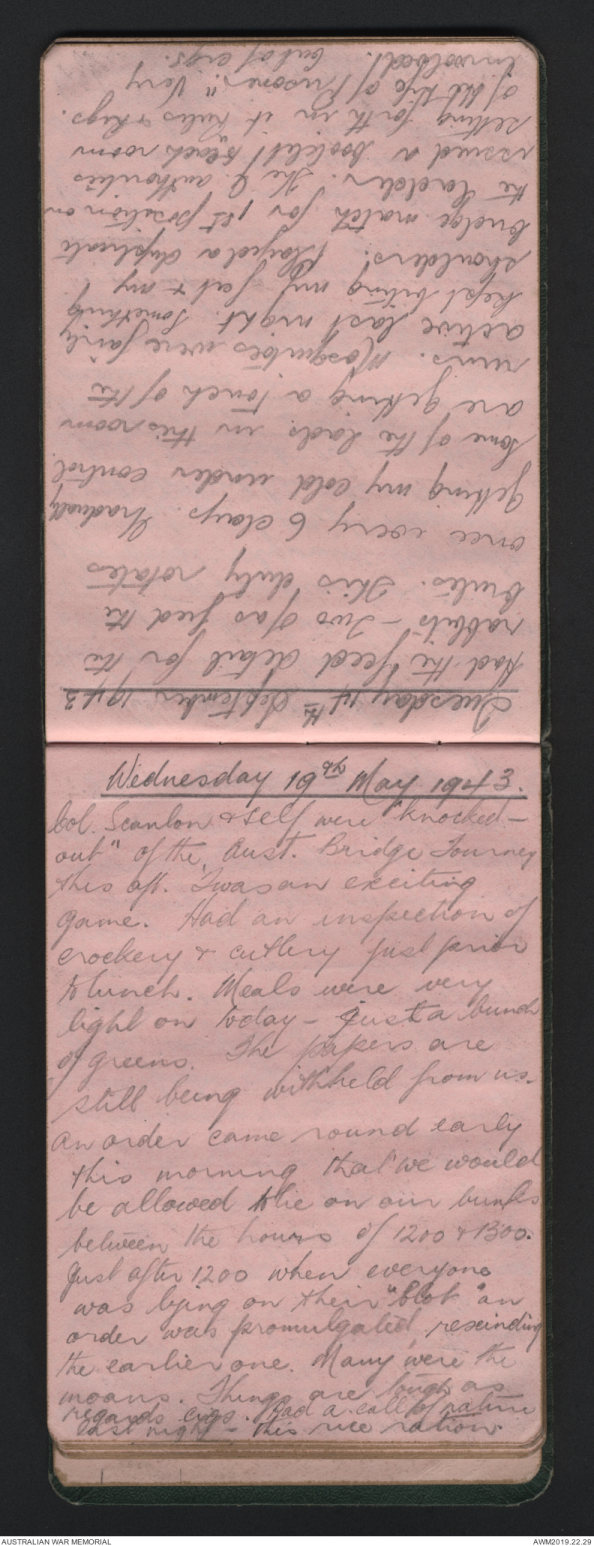 Tuesday 14th September 1943
Had the feed detail for the
rabbits - Two of us feed the
brutes. This duty rotates
once every 6 days. Gradually
getting my cold under control.
Some of the lads in this room
are getting a touch of the
runs. Mosquitoes were fairly
active last night. Something
kept biting my & my
shoulders. Played a duplicate
bridge match for 1st position on
the ladder. The J. authorities
issued a booklet to each room
setting forth in it "Rules & Regs.
of the life of Prisoner." Very
involved! Out of cigs.
Wednesday 19th May 1943.
Col. Scanlon & self were "knocked-
out" of the Aust. Bridge Tourney
this aft. Twas an exciting
game. Had an inspection of
crockery & cutlery just prior
to lunch. Meals were very
light on today - just a bunch
of greens. The papers are
still being withheld from us.
An order came round early
this morning that we would
be allowed to lie on our bunks
between the hours of 1200 & 1300.
Just after 1200 when everyone
was lying on their "blot" an
order was promulgated, rescinding
the earlier one. Many were the
moans. Things are tough as
regards cigs. Had a call of nature
last night - this rice ration.
AUSTRALIAN WAR MEMORIAL
AWM2019.22.29